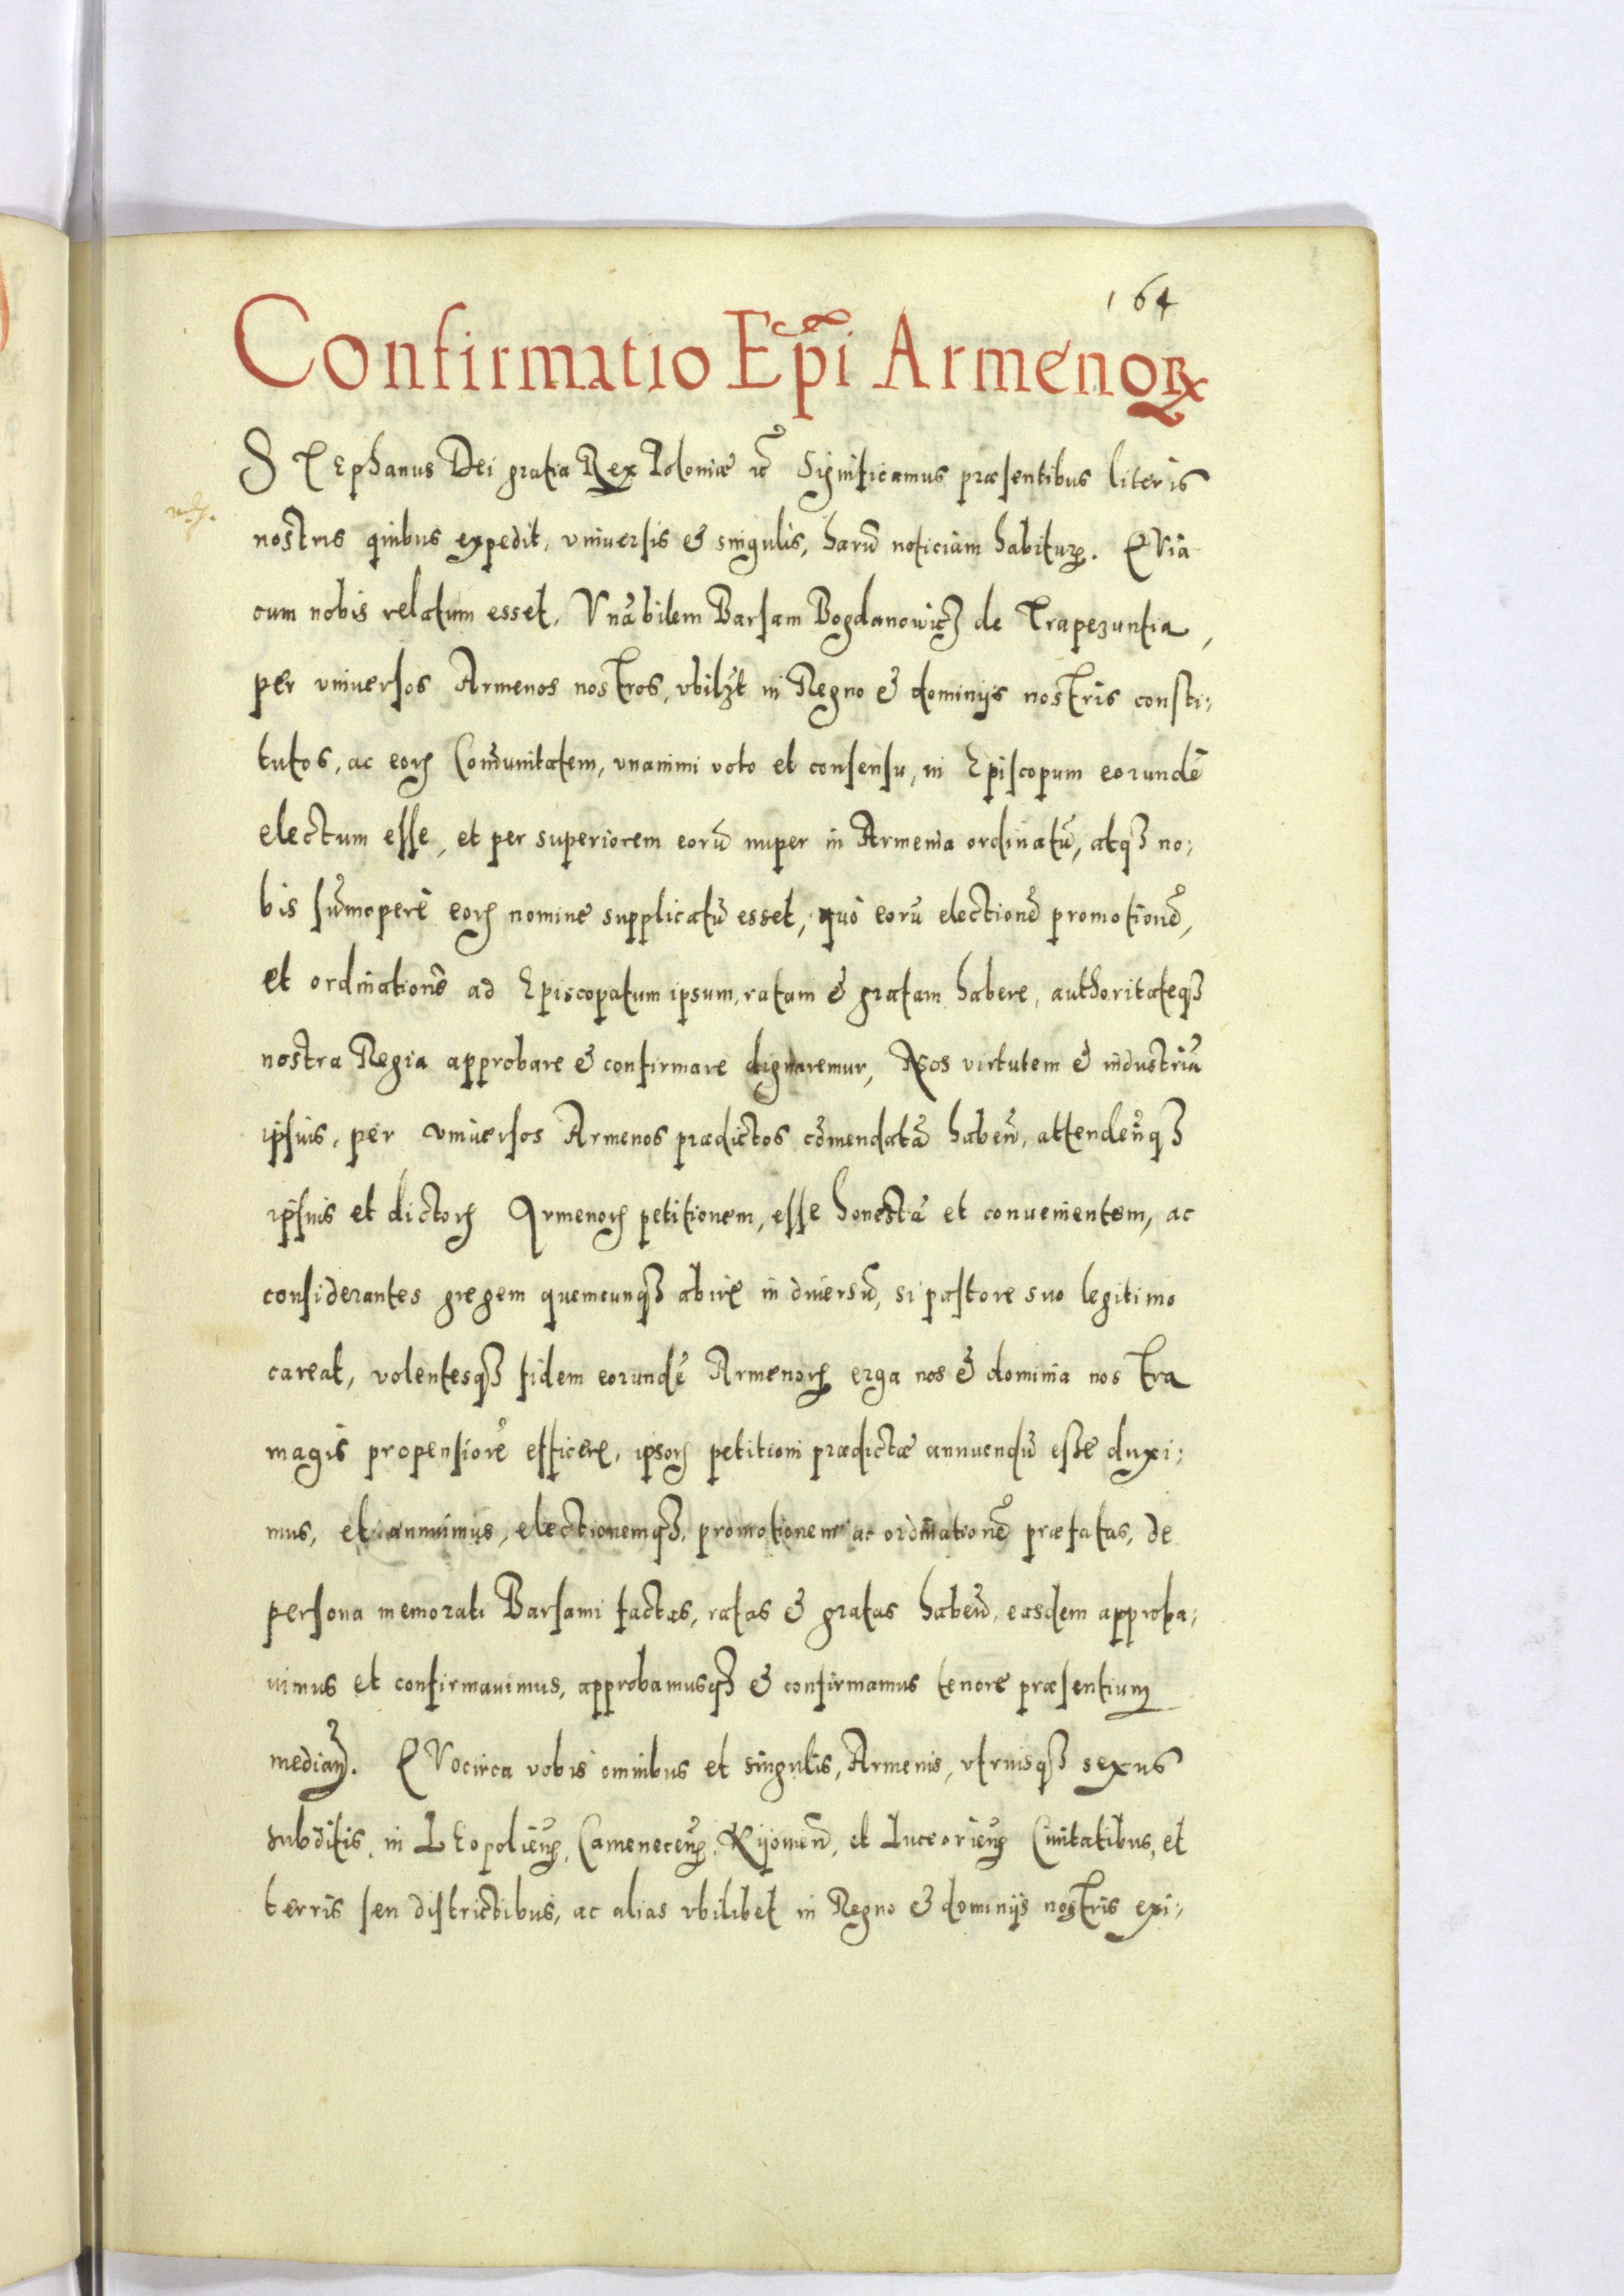 164
Confirmatio Ep̃i Armenoꝝ
STEphanus Dei gratia Rex Poloniæ ꝛc̃ Significamus præsentibus literis
nostris quibus expedit, vniuersis & singulis, harũ noticiam habituꝝ. QVia
cum nobis relatum esset, Vnãbilem Barsam Bogdanowicz de Trapezuntia,
per vniuersos Armenos nostros, vbilꝫt in Regno & dominijs nostris consti:
tutos, ac eoꝝ Com̃unitatem, vnanimi voto et consensu, in Episcopum eorundẽ
electum esse, et per superiorem eorũ nuper in Armenia ordinatũ, atqꝫ no:
bis sum̃opere eoꝝ nomine supplicatũ esset, quo eorũ electionẽ promotionẽ,
et ordinationẽ ad Episcopatum ipsum, ratam & gratam habere, authoritateqꝫ
nostra Regia approbare & confirmare dignaremur, Nos virtutem & industriã
ipsius, per vniuersos Armenos prædictos com̃endatã habeñ, attendeñqꝫ
ipsius et dictoꝝ Armenoꝝ petitionem, esse honestã et conuenientem, ac
considerantes gregem quemcunqꝫ abire in diuersũ, si pastore suo legitimo
careat, volentesqꝫ fidem eorundẽ Armenoꝝ erga nos & dominia nostra
magis propensiorẽ efficere, ipsoꝝ petitioni prædictæ annuendũ esse duxi:
mus, et annuimus, electionemqꝫ, promotionem ac ordinationẽ præfatas, de
persona memorati Barsami factas, ratas & gratas habeñ, easdem approba:
uimus et confirmauimus, approbamusqꝫ & confirmamus tenore præsentium
mediañ. QVocirca vobis omnibus et singulis, Armenis, vtriusqꝫ sexus
subditis, in LEopolieñ, Cameneceñ, Kijouieñ, et Luceorieñ Ciuitatibus, et
terris seu districtibus, ac alias vbilibet in Regno & dominijs nostris exi: